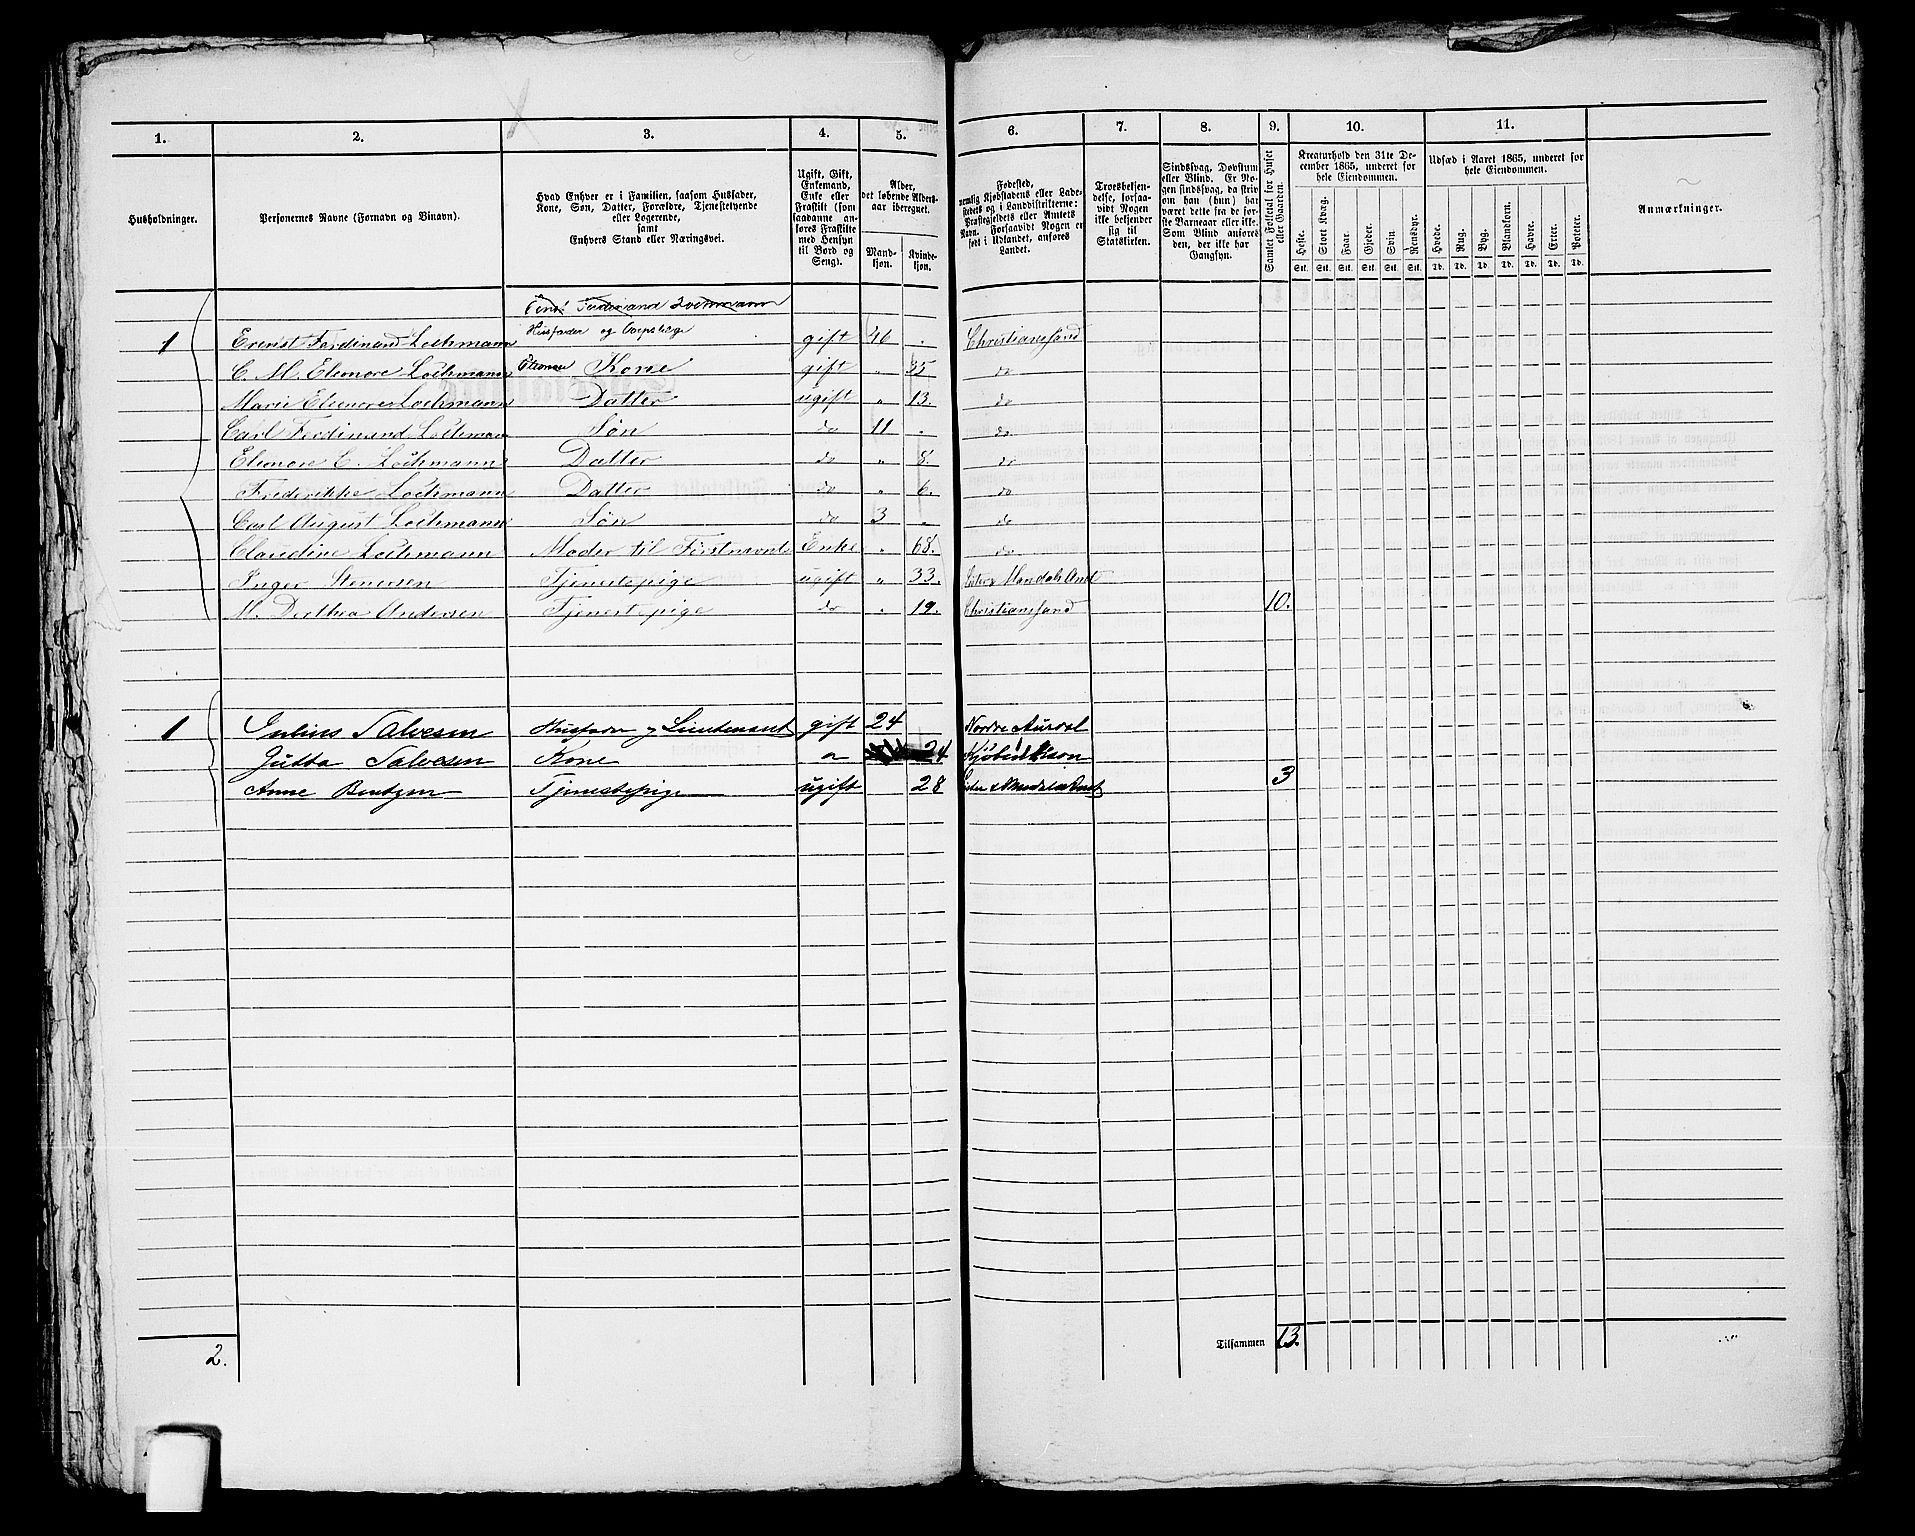 1. 2. 3. 4. 5. 6. 7. 8. 9. 10. 11.
Husholdninger.
Personernes Navne (Fornavn og Binavn).
Hvad Enhver er i Familien, saasom Husfader,
Kone, Søn, Datter, Forældre, Tjenestetyende
eller Logerende,
samt
Enhvers Stand eller Næringsvei.
Ugift, Gift,
Enkemand,
Enke eller
Fraskilt (som
saadanne an-
føres Fraskilte
med Hensyn
til Bord og
Seng).
Alder,
det løbende Alders-
aar iberegnet.
Mand-
kjøn.
Kvinde-
kjøn.
Fødested,
nemlig Kjøbstadens eller Lade-
stedets og i Landdistrikterne:
Præstegjeldets eller Amtets
Navn. Forsaavidt Nogen er
født i Udlandet, anføres
Landet.
Troesbekjen-
delse, forsaa-
vidt Nogen
ikke bekjender
sig til
Statskirken.
Sindssvag, Døvstum
eller Blind. Er No-
gen sindssvag, da skriv
om han (hun) har
været dette fra de før-
ste Barneaar eller ikke.
Som Blind anføres
den, der ikke har
Gangsyn.
Samlet Folketal for Huset
eller Gaarden.
Kreaturhold den 31te De-
cember 1865, underet for
hele Eiendommen.
Heste. Stort Kvæg. Faar. Gjeder. Svin. Rensdyr.
Stk. Stk. Stk. Stk. Stk. Stk.
Udsæd i Aaret 1865, underet for
hele Eiendommen.
Hvede. Rug. Byg. Blandkorn. Havre. Erter. Poteter.
Td. Td. Td. Td. Td. Td. Td.
Anmærkninger.
Ferdinand Lochmann
1 Ernst Ferdinand Lochmann Husfader og Corpslæge gift 46 Christianssand
C. M. Eleonore Lochmann Kone gift " 35 do
Marie Eleonore Lochmann Datter ugift " 13. do
Carl Ferdinand Lochmann Søn do 11 do
Eleonore C. Lochmann Datter do " 8. do
Frederikke Lochmann Datter do " 6. do
Carl August Lochmann Søn do 3 do
Claudine Lochmann Moder til Førstnævnte Enke " 68. do
Inger Stenersen Tjenestepige ugift " 33. Lister & Mandals Amt
M. Dorthea Andersen Tjenestepige do " 19. Christianssand 10.
1 Julius Salvesen Husfader og Lieutenant gift 24 Nordre Aurdal
Jutta Salvesen Kone 24 Kjøbenhavn
Anne Bentzen Tjenestepige ugift 28 Lister & Mandals Amt 3
2. Tilsammen 13.